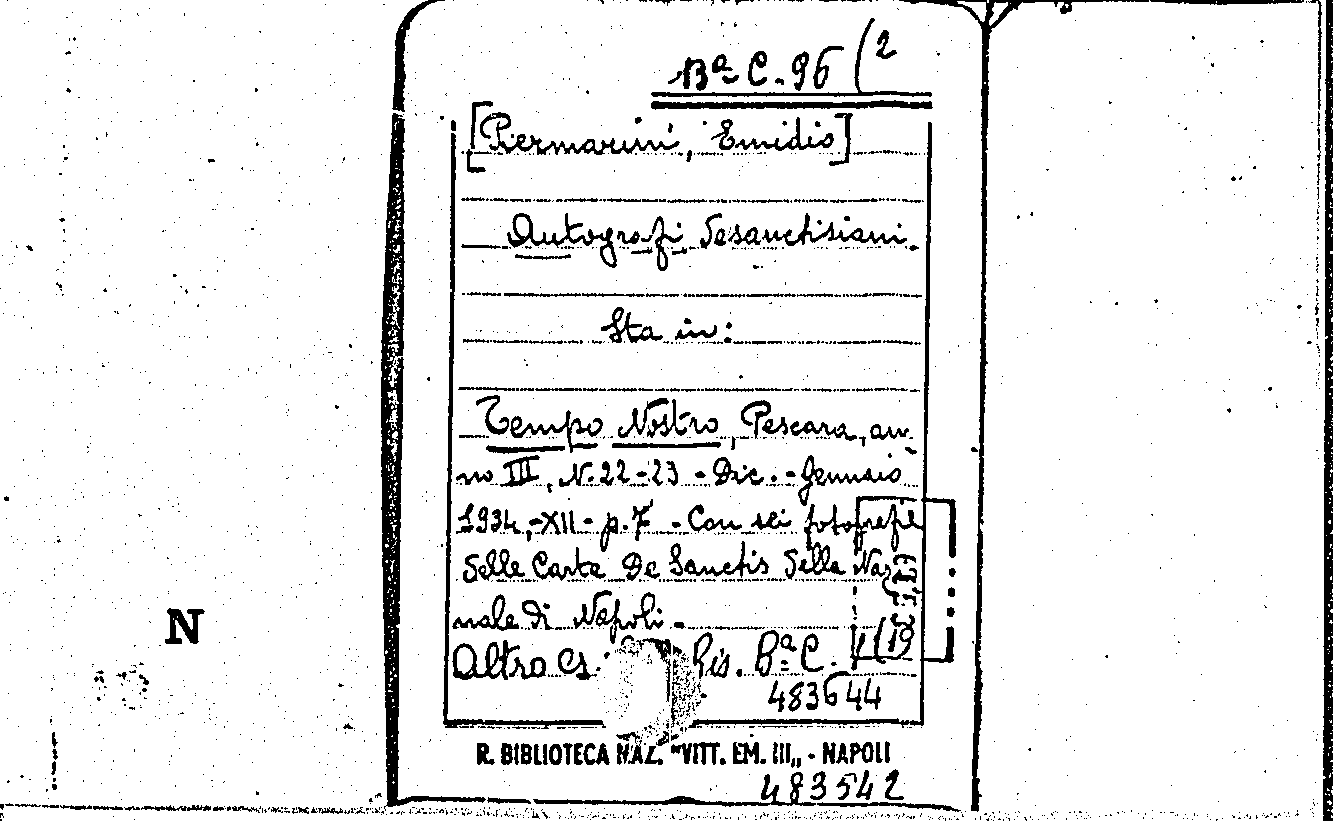 Bª C. 96 (2
[Piermarini, Emidio]
Autografi Desanctisiani.
Sta in:
Tempo Nostro, Pescara, an-
no III, N. 22-23 - Dic. - Gennaio
1934,-XII- p. 7 - Con sei fotografie
delle Carte De Sanctis della Nazio
nale di Napoli.
Altro es. Bis. Bª C.
483644
N
R. BIBLIOTECA NAZ. "VITT. EM. III„ - NAPOLI
483542